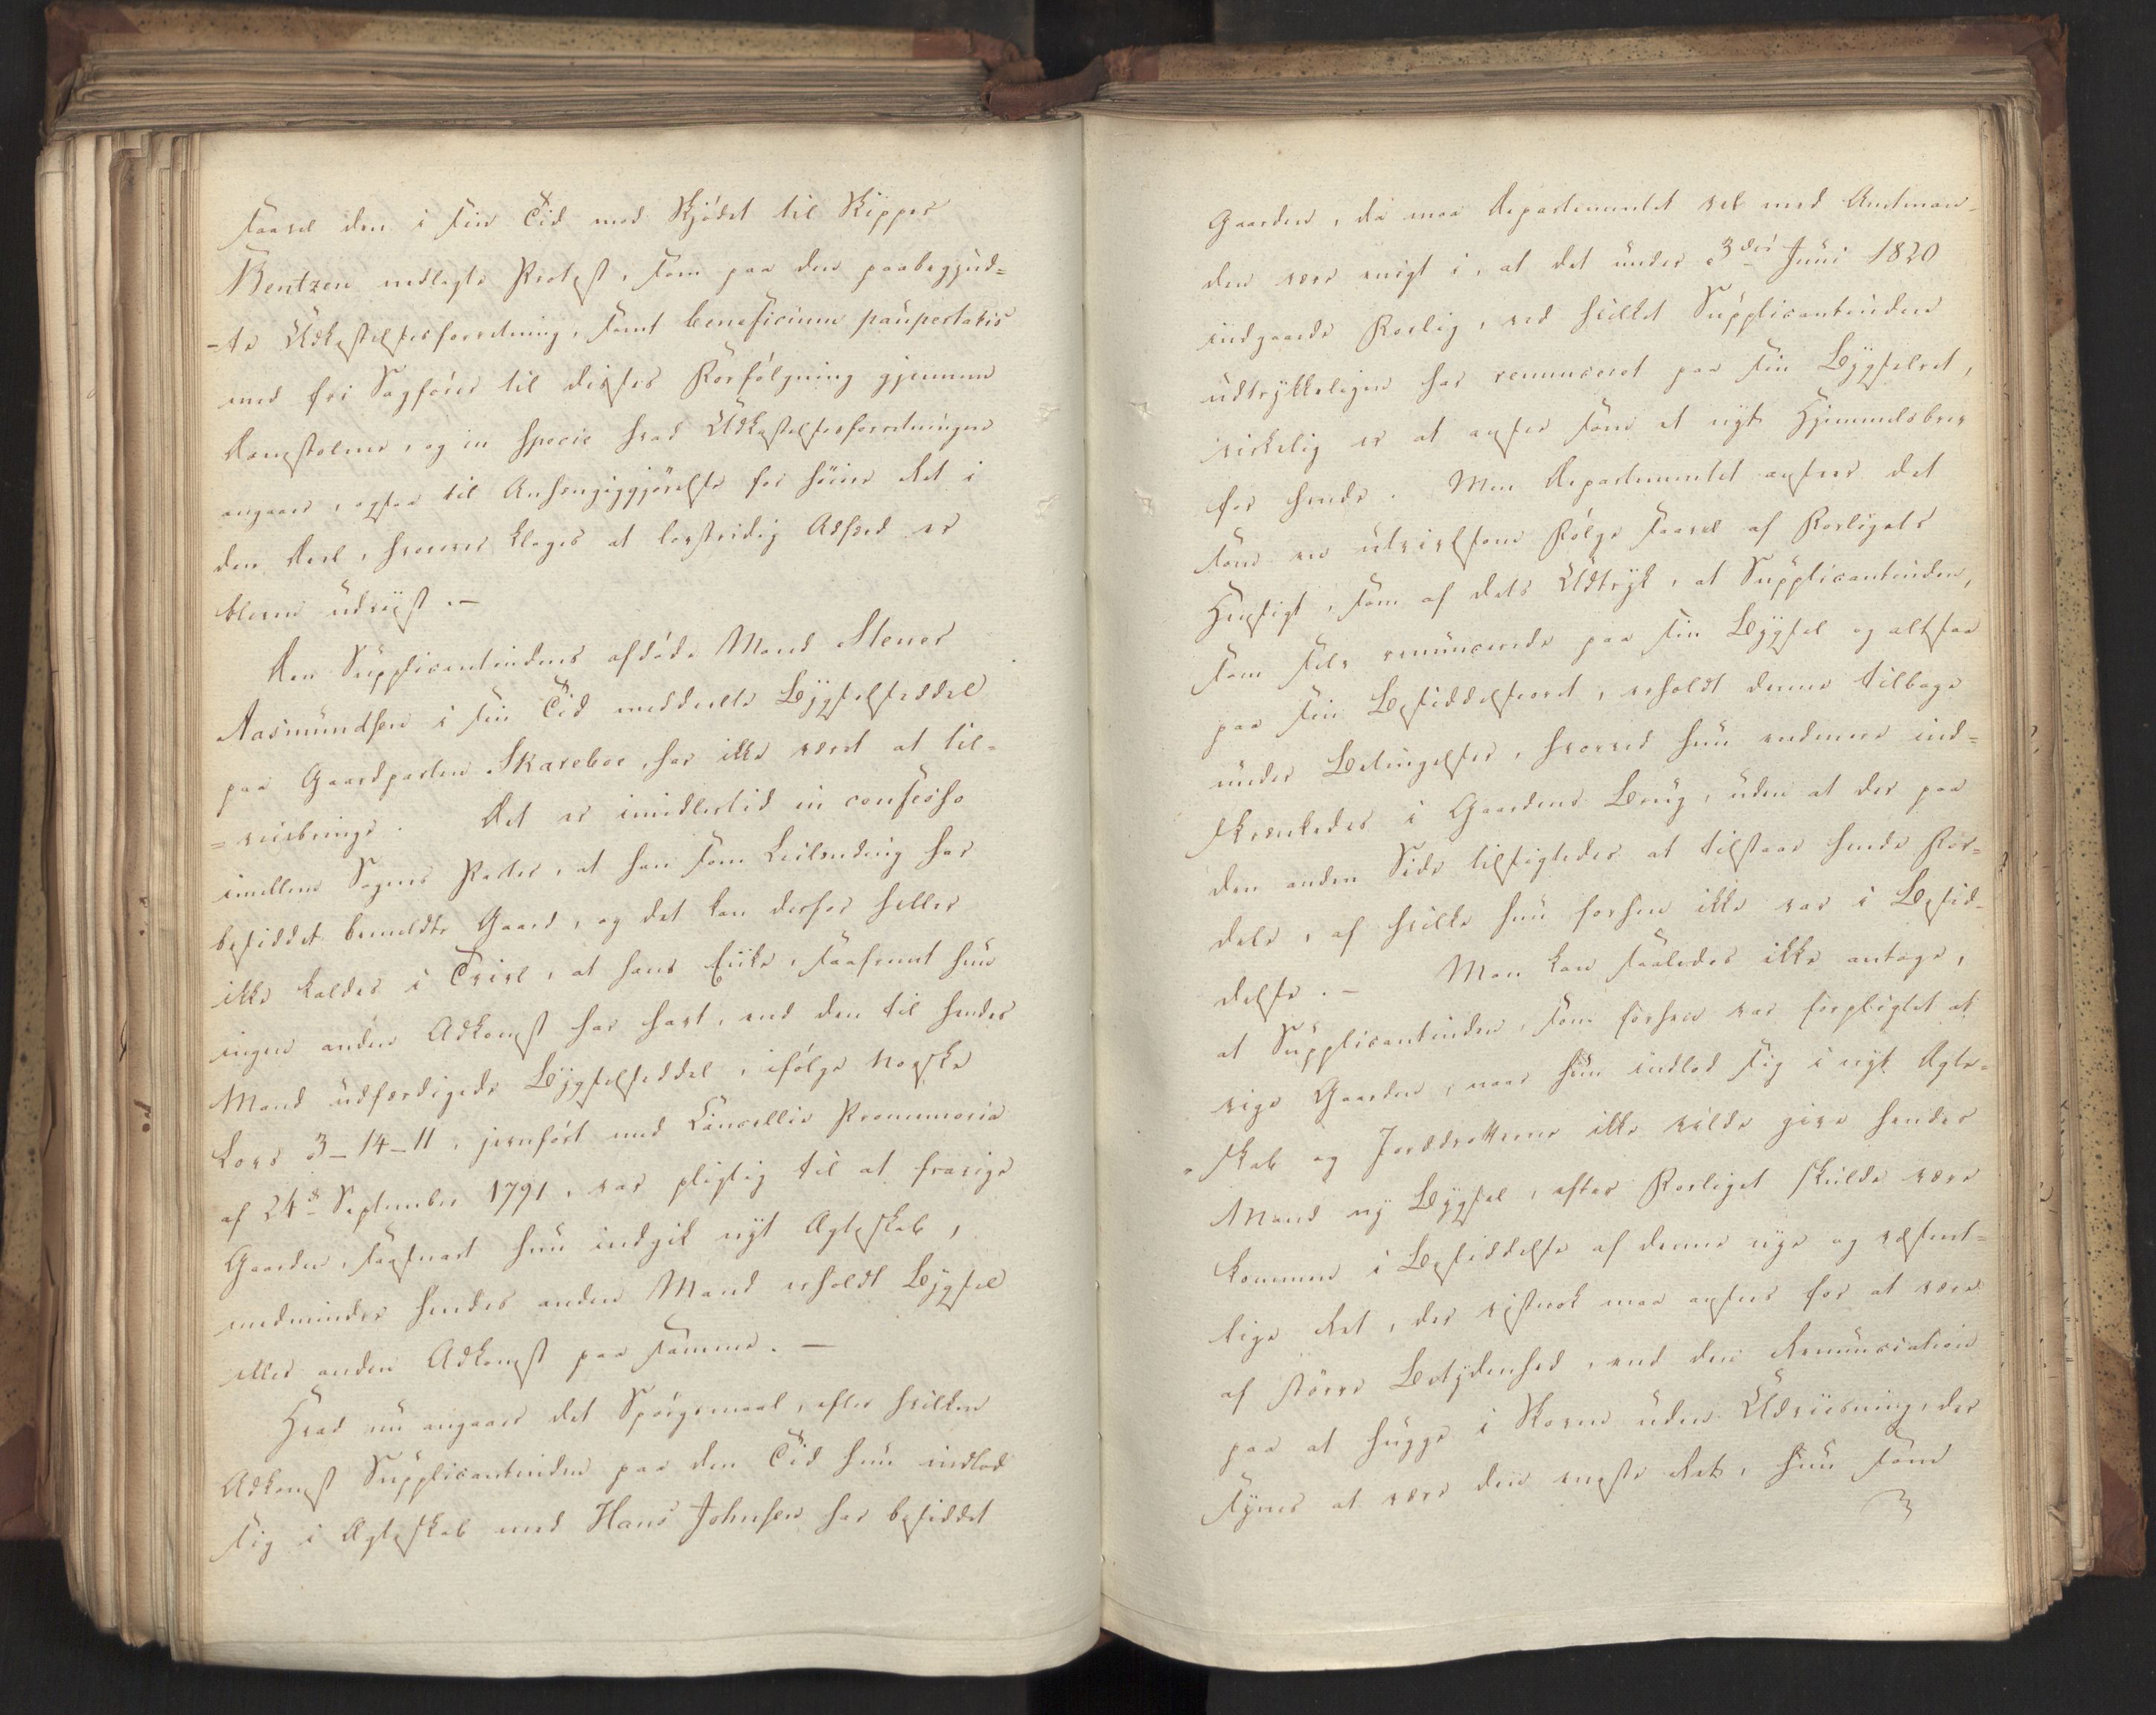 saavel den i sin Tid mod Skjødet til Skipper
Bentzen nedlagte Protest, som paa den paabegynd=
-te Udkastelsesforretning, samt beneficium paupertatis
med fri Sagfører til disses Forfølgning gjennem
Domstolene, og in specie hvad Udkastelsesforretningen
angaaer, ogsaa til Anhængiggjørelse for høiere Ret i
den Deel, hvorover klages at lovstridig Adfærd er
bleven udviist.—
Den Supplicantindens afdøde Mand Stener
Aasmundsen i sin Tid meddeelte Bygselseddel
paa Gaardparten Skareboe, har ikke været at til=
=veiebringe. Det er imidlertid in confesso
imellem Sagens Parter, at han som Leilending har
besiddet bemeldte Gaard, og det kan derfor heller
ikke kaldes i Tvivl, at hans Enke, saafremt hun
ingen anden Adkomst har havt, end den til hendes
Mand udfærdigede Bygselseddel, ifølge Norske
Lovs 3-14-11, jevnført med Cancellie Promemoria
af 24de September 1791, var pligtig til at fravige
Gaarden, saasnart hun indgik nyt Ægteskab,
medmindre hendes anden Mand erholdt Bygsel
eller anden Adkomst paa samme.—
Hvad nu angaaer det Spørgsmaal, efter hvilken
Adkomst Supplicantinden paa den Tid hun indlod
sig i Ægteskab med Hans Johnsen har besiddet
Gaarden, da maa Departementet vel med Amtman-
den være enigt i, at det under 3die Juni 1820
indgaaede Forlig, ved hvilket Supplicantinden
udtrykkeligen har renunceret paa sin Bygselret,
virkelig er at ansee som et nyt Hjemmelsbrev
for hende. Men Departementet anseer det
som en utvivlsom Følge saavel af Forligets
Hensigt, som af dets Udtryk, at Supplicantinden,
som selv renuncerede paa sin Bygsel og altsaa
paa sin Besiddelsesret, erholdt denne tilbage
under Betingelser, hvorved hun endmere ind=
skrænkedes i Gaardens Brug, uden at der paa
den anden Side tilsigtedes at tilstaae hende For=
dele, af hvilke hun forhen ikke var i Besid-
delse.— Man kan saaledes ikke antage,
at Supplicantinden, som forhen var forpligtet at
vige Gaarden, naar hun indlod sig i nyt Ægte=
skab og Jorddrotterne ikke vilde give hendes
Mand ny Bygsel, efter Forliget skulde være
kommen i Besiddelse af denne nye og væsent=
lige Ret, der vistnok maa ansees for at være
af større Betydenhed, end den Renunciation
paa at hugge i Skoven uden Udviisning, der
synes at være den eneste Ret, hun som